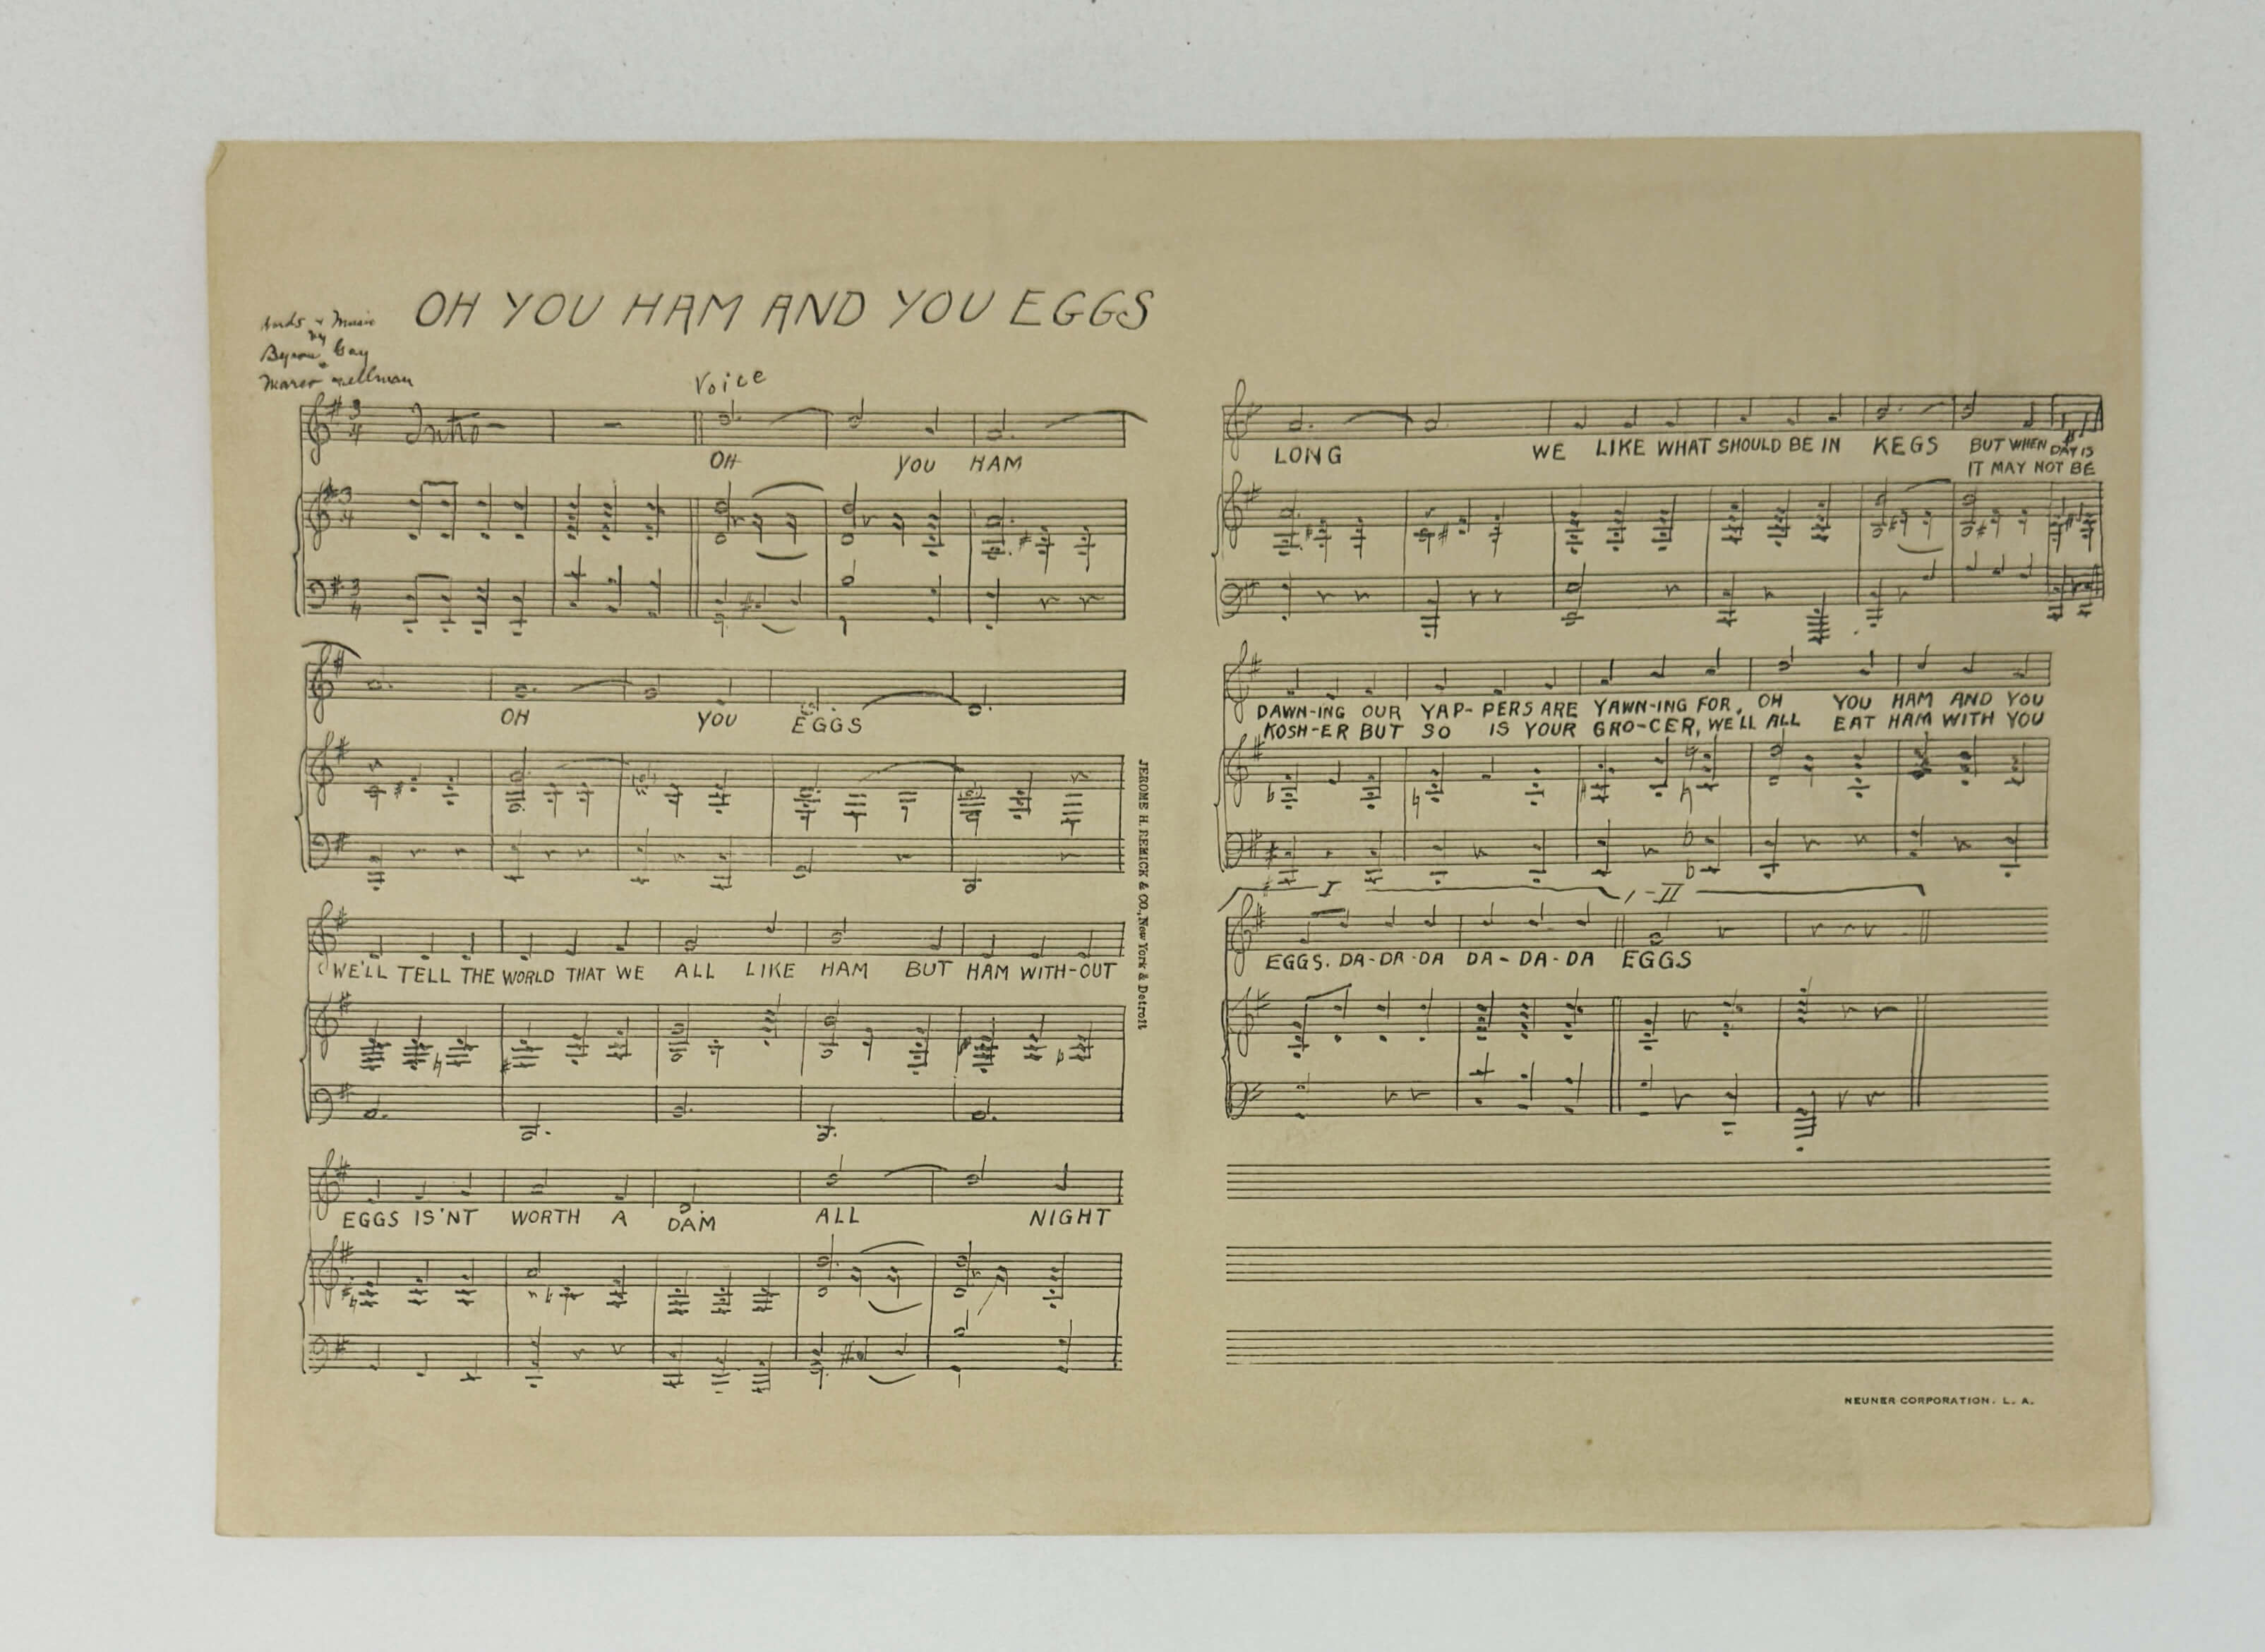 OH YOU HAM AND YOU EGGS
Words & Music
by
Byron Gay
&
Marco Hellman
Voice
Intro
3 4
OH YOU HAM
3 4
3 4
OH YOU EGGS
WE'LL TELL THE WORLD THAT WE ALL LIKE HAM BUT HAM WITH-OUT
EGGS IS'NT WORTH A DAM ALL NIGHT
JEROME H. REMICK & CO., New York & Detroit
LONG WE LIKE WHAT SHOULD BE IN KEGS BUT WHEN DAY IS
IT MAY NOT BE
DAWN-ING OUR YAP-PERS ARE YAWN-ING FOR, OH YOU HAM AND YOU
KOSH-ER BUT SO IS YOUR GRO-CER, WE'LL ALL EAT HAM WITH YOU
I II
EGGS. DA-DA-DA DA-DA-DA EGGS
NEUNER CORPORATION. L. A.